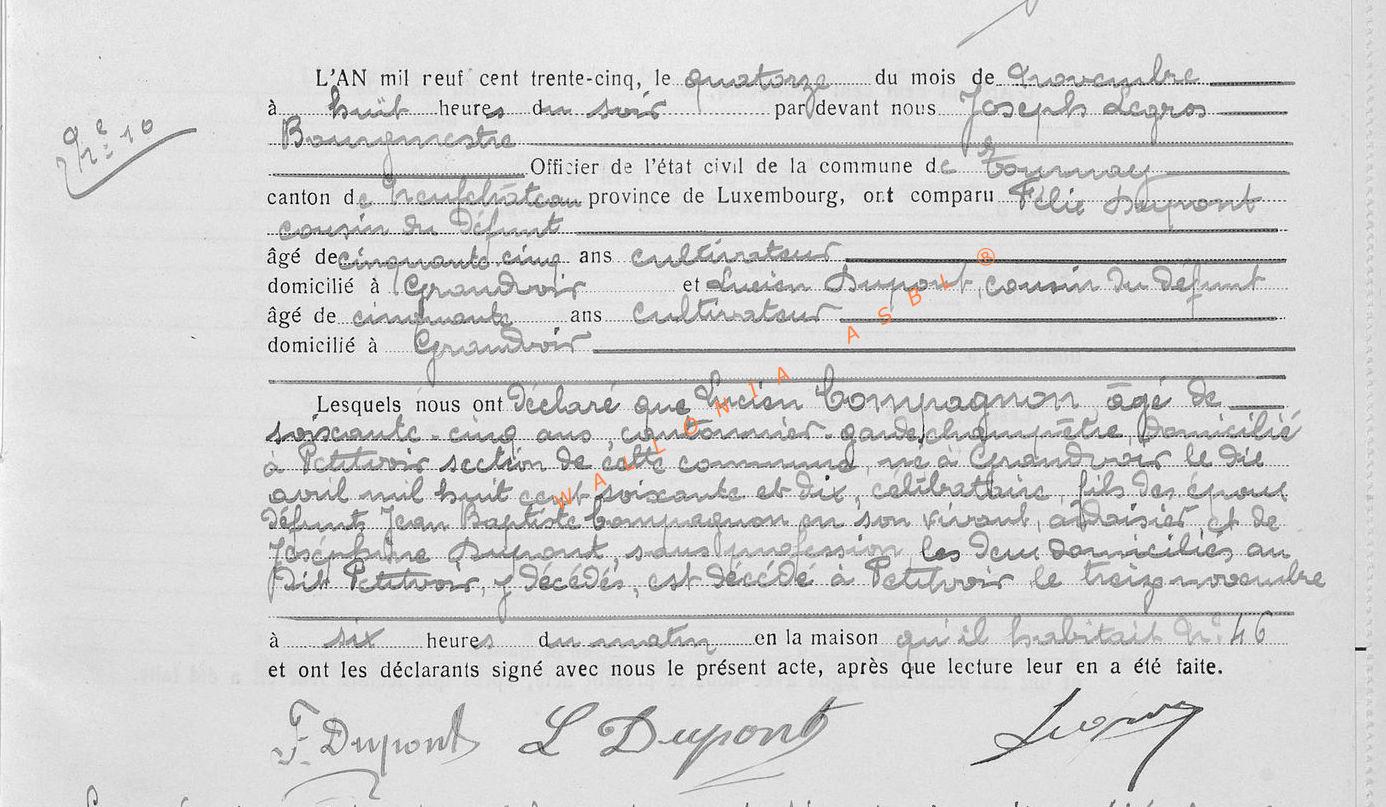 N° 10
L'AN mil neuf cent trente-cinq, le quatorze du mois de novembre
à huit heures du soir par devant nous Joseph Legros
Bourgmestre
Officier de l'état civil de la commune de Tournay
canton de Neufchâteau province de Luxembourg, ont comparu Félix Dupont
cousin du défunt
âgé de cinquante cinq ans cultivateur
domicilié à Grandvoir et Lucien Dupont, cousin du défunt
âgé de cinquante ans cultivateur
domicilié à Grandvoir
Lesquels nous ont déclaré que Lucien Compagnon âgé de
soixante-cinq ans, cantonnier-garde champêtre, domicilié
à Petitvoir section de cette commune, né à Grandvoir le dix
avril mil huit cent soixante et dix, célibataire, fils des époux
défunts Jean Baptiste Compagnon en son vivant, ardoisier, et de
Joséphine Dupont, sans profession, les deux domiciliés au
dit Petitvoir, y décédés, est décédé à Petitvoir le treize novembre
à six heures du matin en la maison qu'il habitait N° 46
et ont les déclarants signé avec nous le présent acte, après que lecture leur en a été faite.
F Dupont L Dupont
WALLONIA ASBL ®